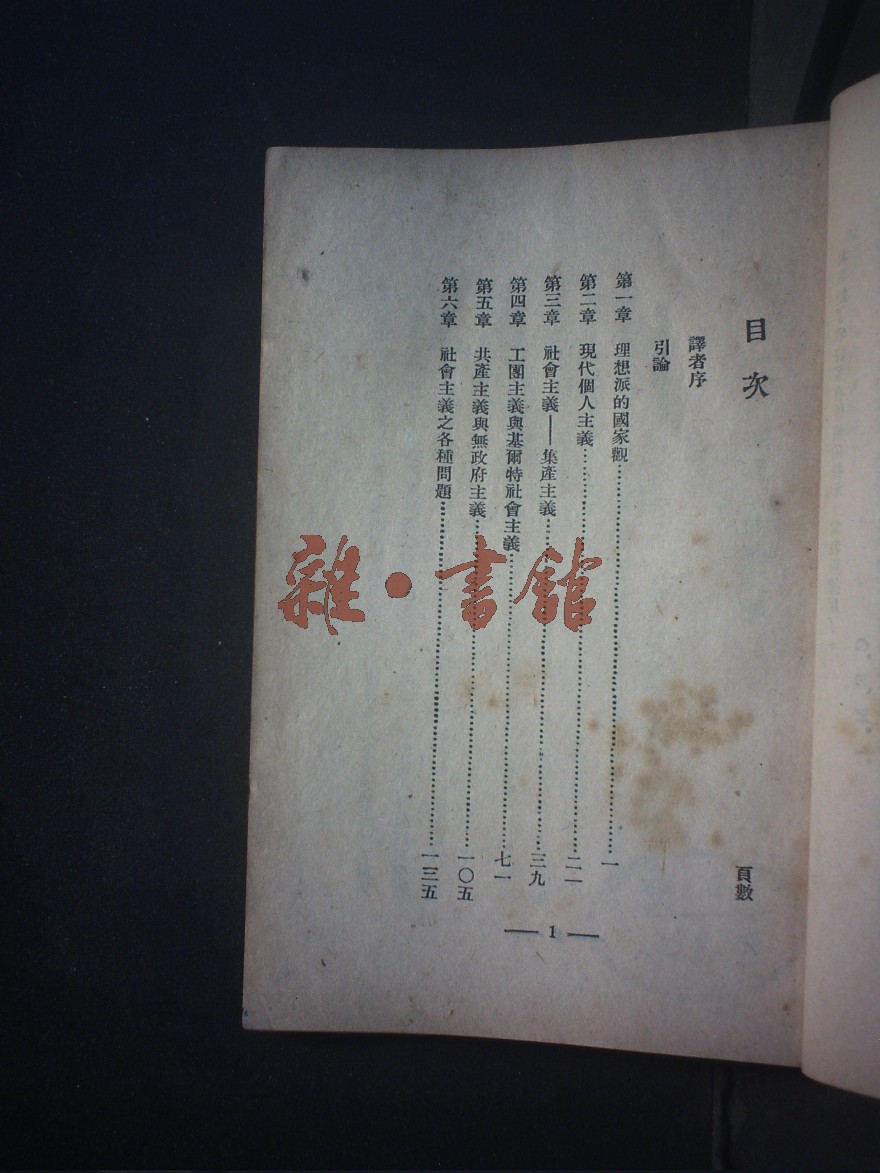 目次
頁數
譯者序
引論
第一章 理想派的國家觀……一
第二章 現代個人主義……二一
第三章 社會主義——集產主義……三九
第四章 工團主義與基爾特社會主義……七一
第五章 共產主義與無政府主義……一〇五
第六章 社會主義之各種問題……一三五
— 1 —
雜·書館